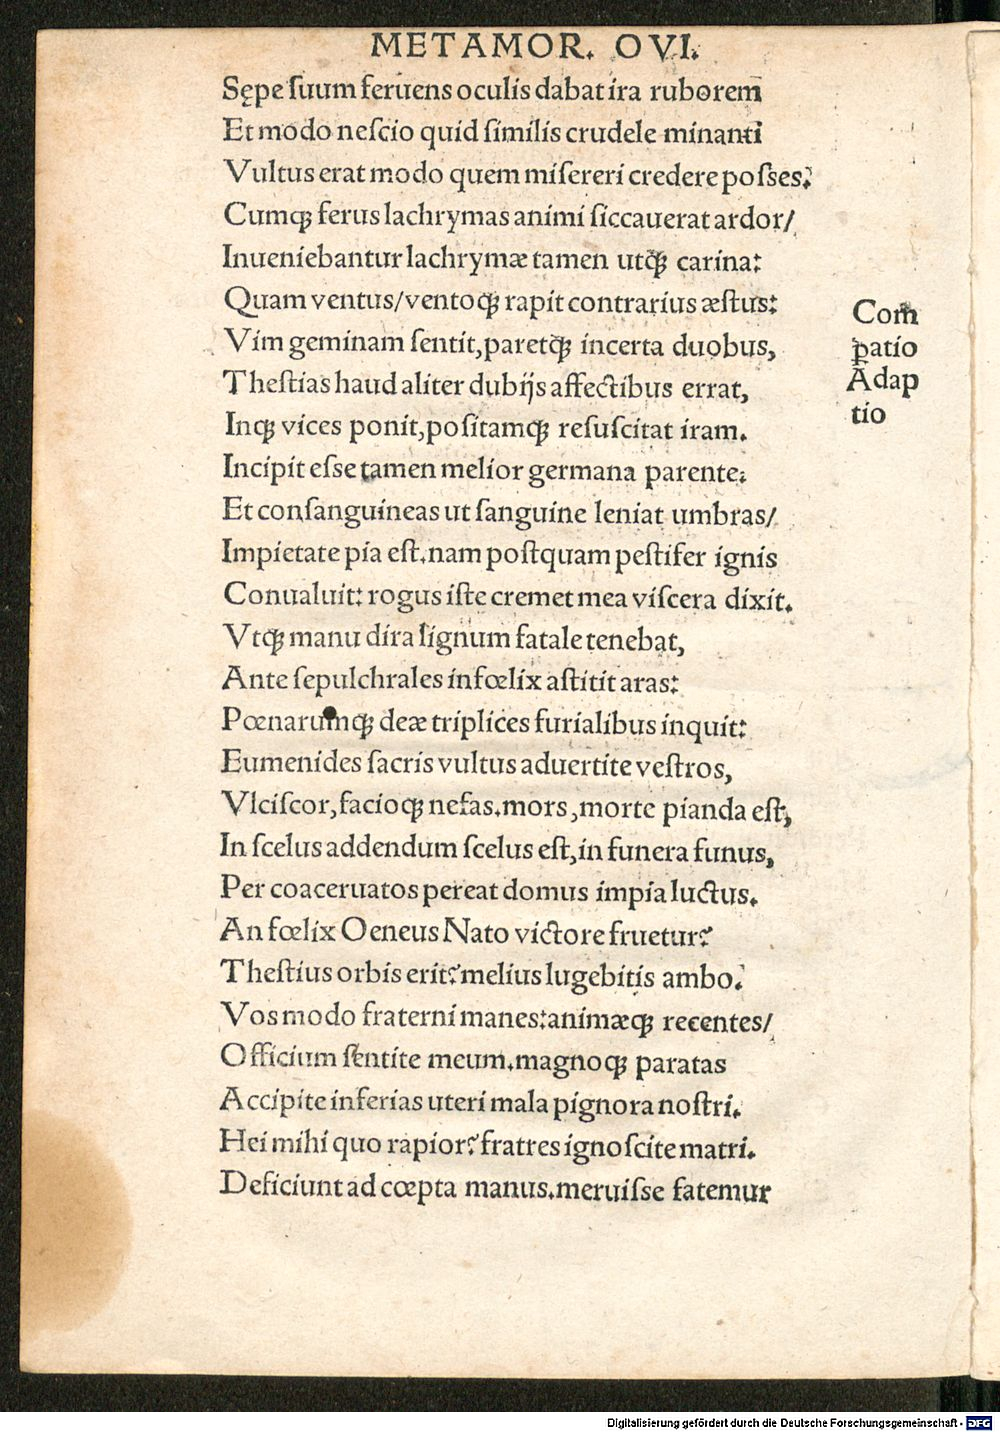 METAMOR. OVI.
Sępe ſuum feruens oculis dabat ira ruborem
Et modo neſcio quid ſimilis crudele minanti
Vultus erat modo quem miſereri credere poſſes.
Cumqꝫ ferus lachrymas animi ſiccauerat ardor/
Inueniebantur lachrymæ tamen utqꝫ carina:
Quam ventus/ventoqꝫ rapit contrarius æſtus:
Vim geminam ſentit,paretqꝫ incerta duobus,
Theſtias haud aliter dubijs affectibus errat,
Inqꝫ vices ponit,poſitamqꝫ reſuſcitat iram.
Incipit eſſe tamen melior germana parente:
Et conſanguineas ut ſanguine leniat umbras/
Impietate pia eſt.nam poſtquam peſtifer ignis
Conualuit: rogus iſte cremet mea viſcera dixit.
Vtqꝫ manu dira lignum fatale tenebat,
Ante ſepulchrales infœlix aſtitit aras:
Pœnarumqꝫ deæ triplices furialibus inquit:
Eumenides ſacris vultus aduertite veſtros,
Vlciſcor,facioqꝫ nefas.mors,morte pianda eſt,
In ſcelus addendum ſcelus eſt,in funera funus,
Per coaceruatos pereat domus impia luctus.
An fœlix Oeneus Nato victore fruetur?
Theſtius orbis erit?melius lugebitis ambo.
Vos modo fraterni manes:animæqꝫ recentes/
Officium ſentite meum.magnoqꝫ paratas
Accipite inferias uteri mala pignora noſtri.
Hei mihi quo rapior?fratres ignoſcite matri.
Deficiunt ad cœpta manus.meruiſſe fatemur
Com
ꝑatio
Adap
tio
Digitalisierung gefördert durch die Deutsche Forschungsgemeinschaft - DFG